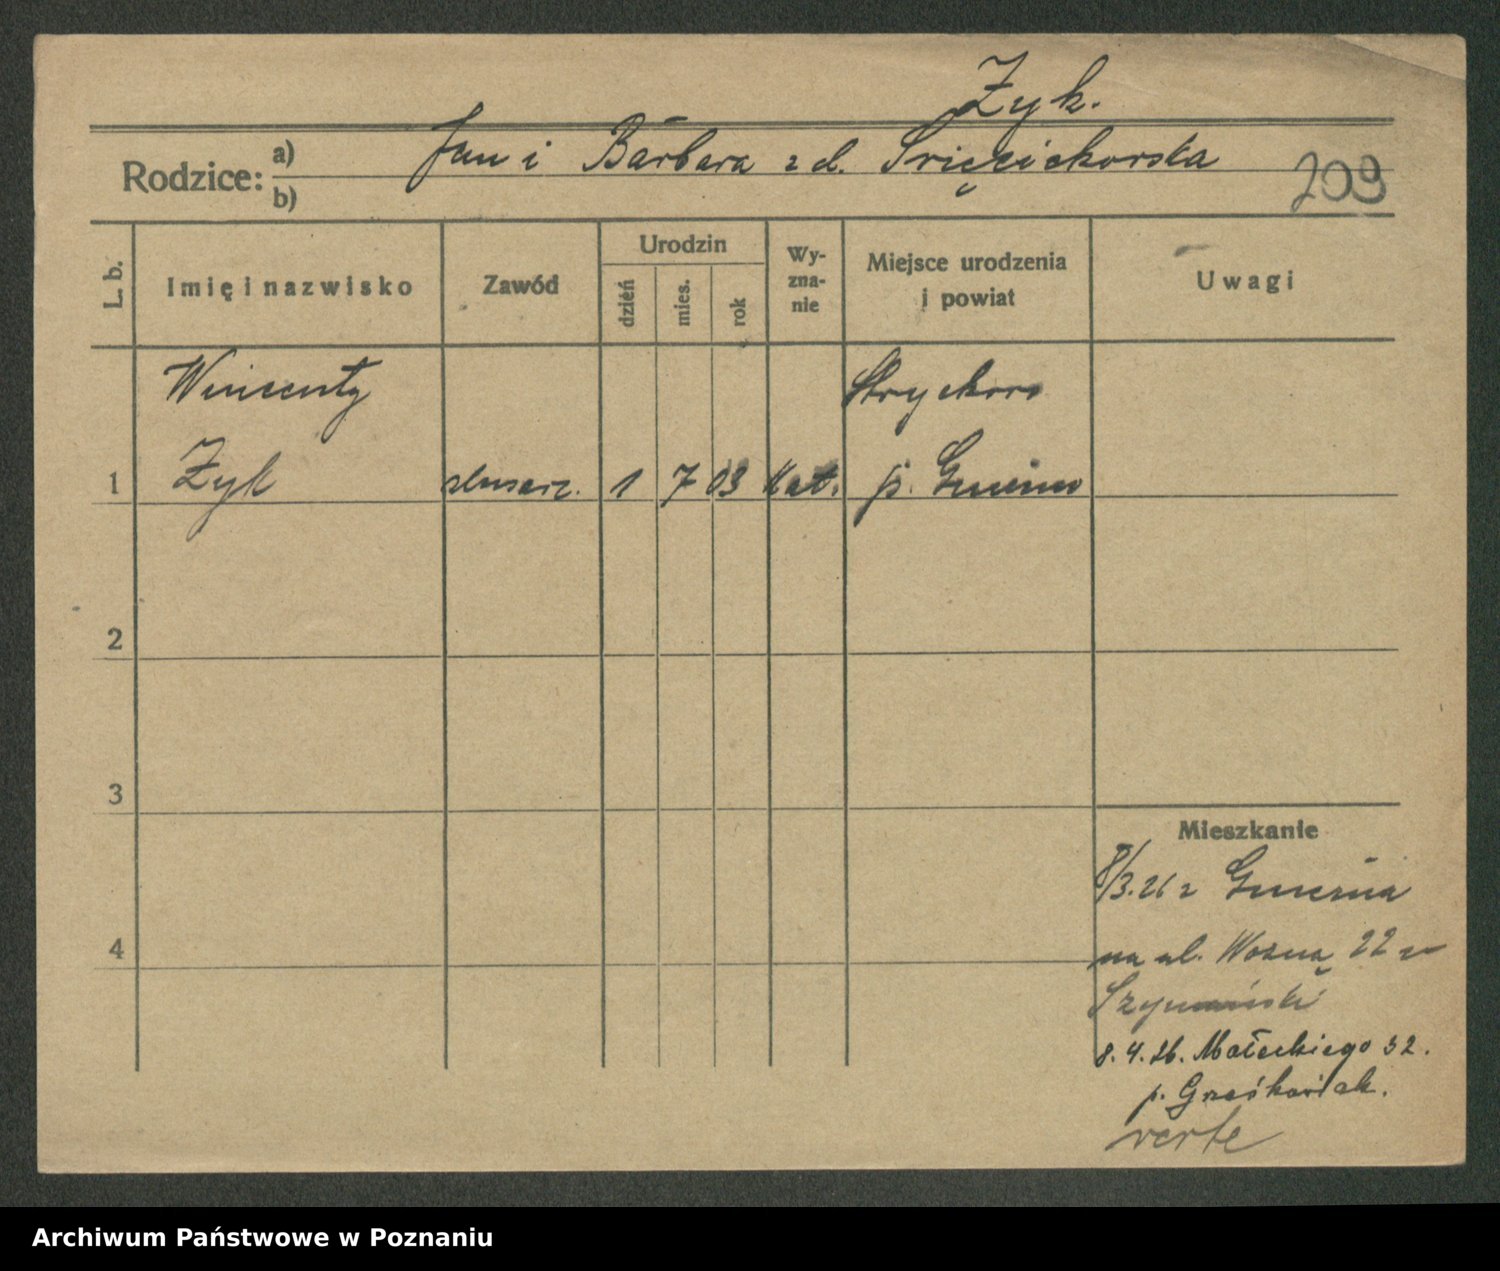 Żyk.
Rodzice: a) Jan i Barbara z d. Święcichowska
b)
209
L. b.
Imię i nazwisko
Zawód
Urodzin
dzień
mies.
rok
Wy-
zna-
nie
Miejsce urodzenia
i powiat
Uwagi
Wincenty
1 Żyk ślusarz. 1 7 03 kat. p. Gniezno
2
3
4
Mieszkanie
8/3.26 z Gniezna
na ul. Woźną 22
Szymański
8.4.26. Małeckiego 32.
p. Grześkowiak.
verte
Archiwum Państwowe w Poznaniu